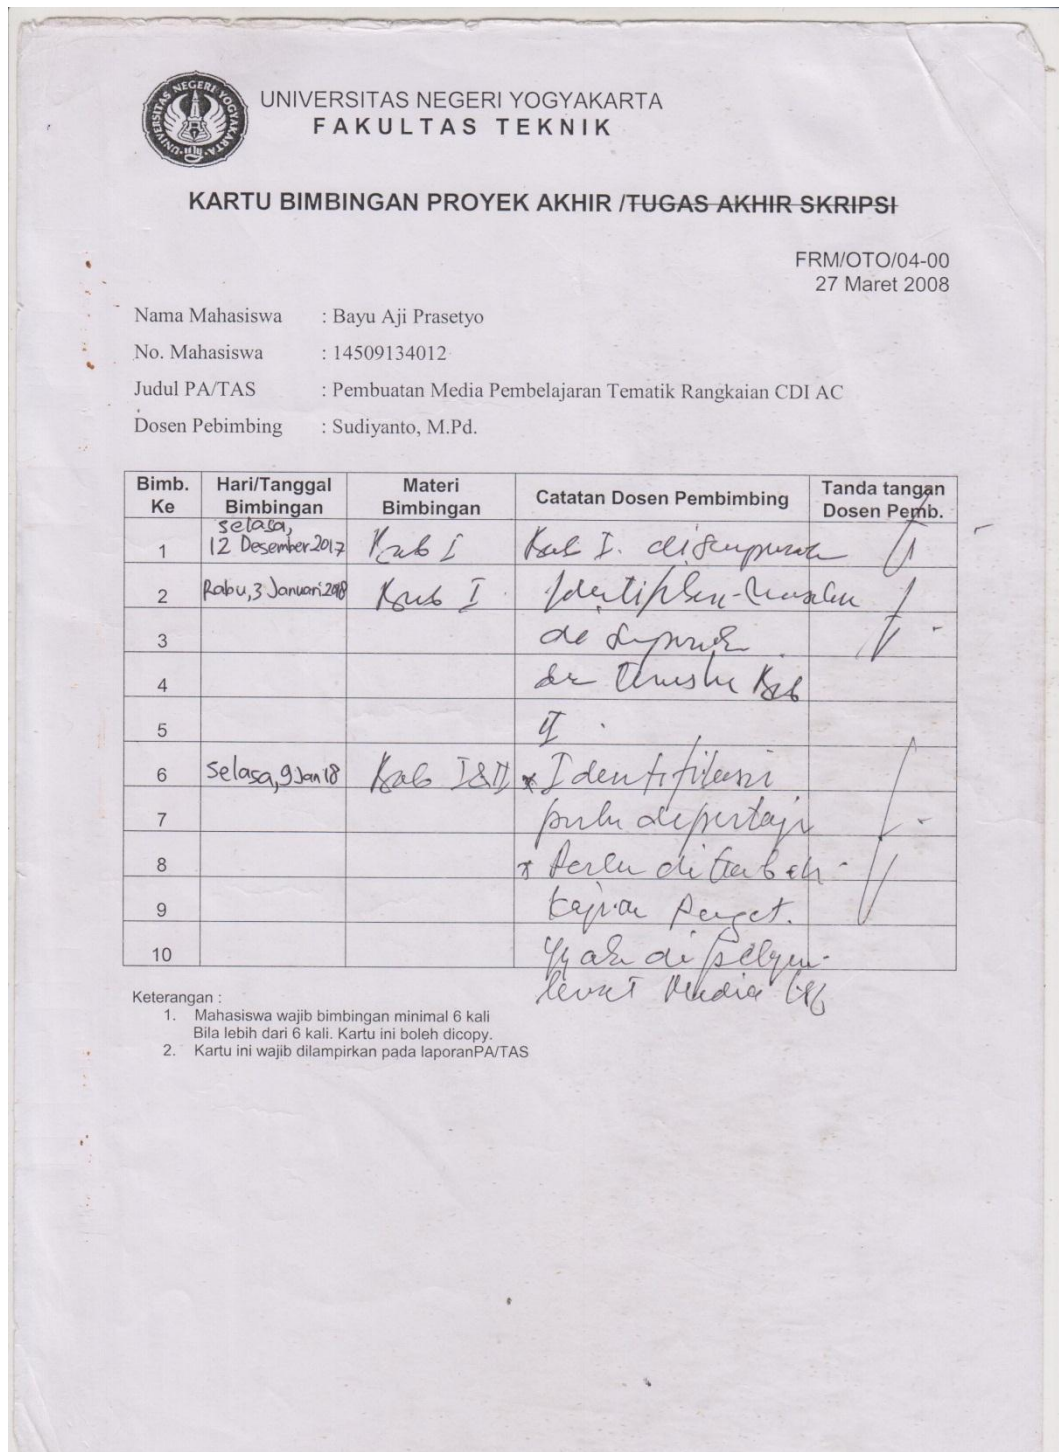 UNIVERSITAS NEGERI YOGYAKARTA
UNIVERSITAS NEGERI YOGYAKARTA
FAKULTAS TEKNIK
KARTU BIMBINGAN PROYEK AKHIR /TUGAS AKHIR SKRIPSI
FRM/OTO/04-00
27 Maret 2008
Nama Mahasiswa : Bayu Aji Prasetyo
No. Mahasiswa : 14509134012
Judul PA/TAS : Pembuatan Media Pembelajaran Tematik Rangkaian CDI AC
Dosen Pebimbing : Sudiyanto, M.Pd.
Bimb. Ke Hari/Tanggal Bimbingan Materi Bimbingan Catatan Dosen Pembimbing Tanda tangan Dosen Pemb.
selasa,
1 12 Desember 2017 Bab I Bab I.
2 Rabu, 3 Januari 2018 Bab I
3
4 Bab
5 II
6 Selasa, 9 Jan 18 Bab I&II * Identifikasi
7 perlu dipertaja
8 * Perlu
9 kajian
10
Media
Keterangan :
1. Mahasiswa wajib bimbingan minimal 6 kali
Bila lebih dari 6 kali. Kartu ini boleh dicopy.
2. Kartu ini wajib dilampirkan pada laporanPA/TAS